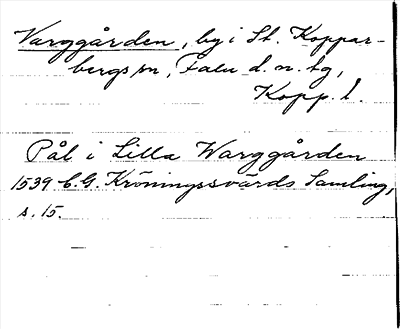 Varggården, by i St. Koppar-
bergs sn, Falu d. n. tg,
Kopp. l.
Pål i Lilla Warggården
1539 C.G. Kröningssvärds Samling,
s. 15.